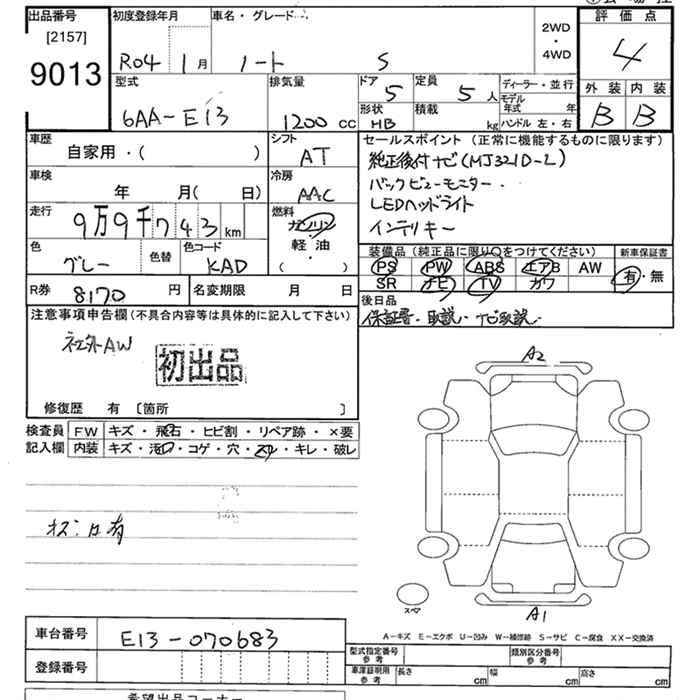 出品番号 初度登録年月 車名・グレード 評価点
[2157] 2WD
・
9013 R04 1月 ノート S 4WD 4
型式 排気量 ドア 5 定員 5人 ディーラー・並行 外装 内装
6AA-E13 1200cc 形状 HB 積載 kg モデル年式 年 B B
ハンドル 左・右
車歴 シフト セールスポイント(正常に機能するものに限ります)
自家用・( ) AT 純正後付ナビ(MJ321D-L)
車検 冷房 バックビューモニター
年 月(日) AAC LEDヘッドライト
走行 燃料 インテリキー
9万9千743km ガソリン
色 色替 色コード 軽・油 装備品(純正品に限り○をつけてください) 新車保証書
グレー KAD ( ) PS PW ABS エアB AW 有・無
R券 8170円 名変期限 月 日 SR ナビ TV カワ
注意事項申告欄(不具合内容等は具体的に記入して下さい) 後日品
社外AW 保証書・取説・ナビ取説
初出品
修復歴 有 [箇所 ]
検査員 FW キズ・飛石・ヒビ割・リペア跡・×要
記入欄 内装 キズ・汚れ・コゲ・穴・スレ・キレ・破レ
A2
スペア
A1
A-キズ E-エクボ U-凹み W-補修跡 S-サビ C-腐食 XX-交換済
車台番号 E13-070683 型式指定番号 参考 類別区分番号 参考
登録番号 車庫証明用 参考 長さ cm 幅 cm 高さ cm
希望出品コーナー